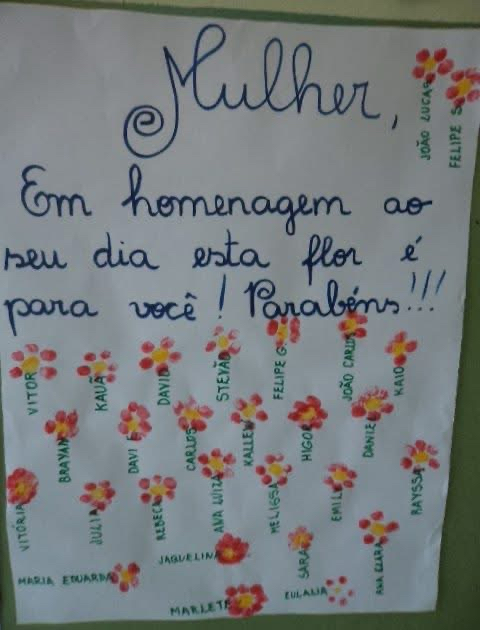 Mulher,
JOÃO LUCAS
FELIPE S.
Em homenagem ao
seu dia esta flor é
para você! Parabéns!!!
VITOR
KAUÃ
DAVID
STEVÃO
FELIPE G.
JOÃO CARLOS
KAIO
BRAYAN
DAVI F.
CARLOS
KALLEW
HIGOR
DANIEL
VITÓRIA
JULIA
REBECA
ANA LUIZA
MELISSA
EMILY
RAYSSA
MARIA EDUARDA
JAQUELINA
SARA
ANA CLARA
MARLETE
EULALIA